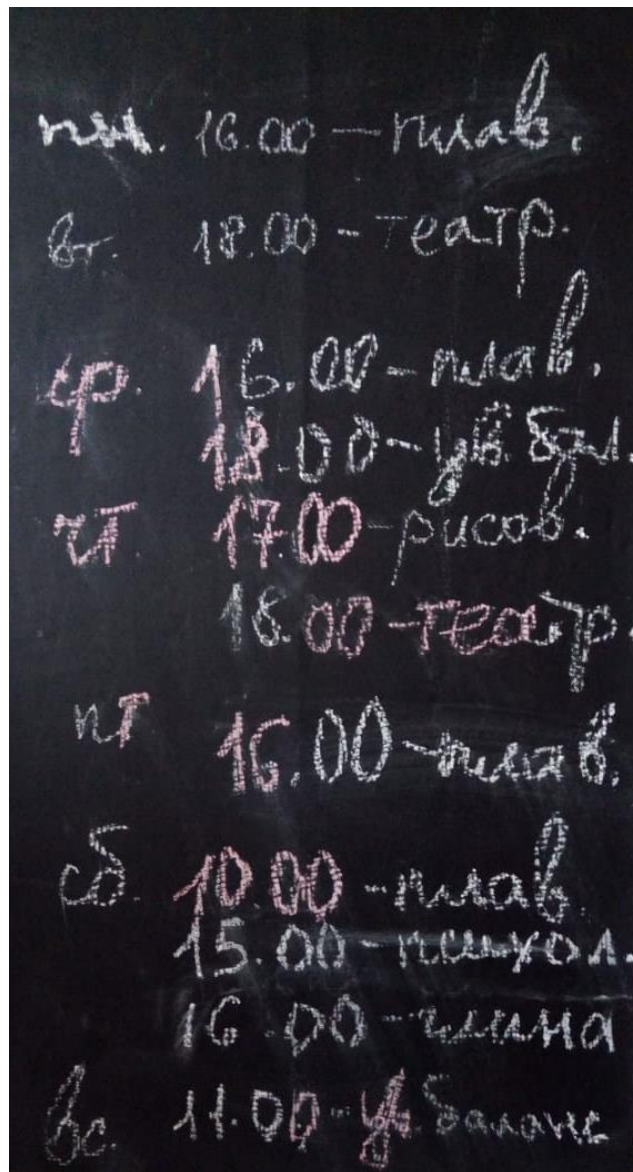 пн. 16.00 - плав.
вт. 18.00 - театр.
ср. 16.00 - плав.
18.00 - ув. бал.
чт 17.00 - рисов.
18.00 - театр.
пт 16.00 - плав.
сб. 10.00 - плав.
15.00 - психол.
16.00 - глина
вс. 11.00 - ув. баланс